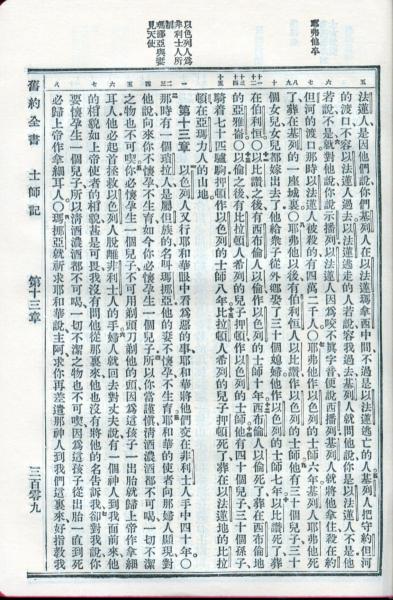 耶弗他卒
以色列人為
非利士人所
瑪挪亞與妻
見天使
五
法蓮人、是因他們說你們基列人在以法蓮瑪拿西中間不過是以法蓮逃亡的人基列人把守約但河
的渡口不容以法蓮人過去以法蓮逃走的人若說容我過去基列人就問他說你是以法蓮人不是他
六
若說不是就對他說你說示播列以法蓮人因為咬不眞字音便說西播列基列人就將他拿住殺在約
七
但河的渡口那時以法蓮人被殺的有四萬二千人〇耶弗他作以色列的士師六年基列人耶弗他死
八九
了葬在基列的一座城裏〇耶弗他以後有伯利恒人以比讚作以色列的士師他有三十個兒子三十
十
個女兒女兒都嫁出去了他給衆子從外鄉娶了三十個媳婦他作以色列的士師七年以比讚死了葬
十一 十二
在伯利恒〇以比讚之後有西布倫人以倫作以色列的士師十年西布倫人以倫死了葬在西布倫地
十三 十四
的亞雅崙〇以倫之後有比拉頓人希列的兒子押頓作以色列的士師他有四十個兒子三十個孫子
十五
騎着七十匹驢駒押頓作以色列的士師八年比拉頓人希列的兒子押頓死了葬在以法蓮地的比拉
頓在亞瑪力人的山地
一
第十三章 以色列人又行耶和華眼中看為惡的事耶和華將他們交在非利士人手中四十年〇
二三
那時有一個瑣拉人是屬但族的名叫瑪挪亞他的妻不懷孕不生育耶和華的使者向那婦人顯現對
四
他說向來你不懷孕不生育如今你必懷孕生一個兒子所以你當謹愼清酒濃酒都不可喝一切不潔
五
之物也不可喫你必懷孕生一個兒子不可用剃頭刀剃他的頭因為這孩子一出胎就歸上帝作拿細
六
耳人他必起首拯救以色列人脫離非利士人的手婦人就回去對丈夫說有一個神人到我面前來他
的相貌如上帝使者的相貌甚是可畏我沒有問他從那裏來他也沒有將他的名告訴我卻對我說你
七
要懷孕生一個兒子所以清酒濃酒都不可喝一切不潔之物也不可喫因為這孩子從出胎一直到死
八
必歸上帝作拿細耳人〇瑪挪亞就祈求耶和華說主阿求你再差遣那神人到我們這裏來好指教我
舊約全書 士師記 第十三章 三百零九